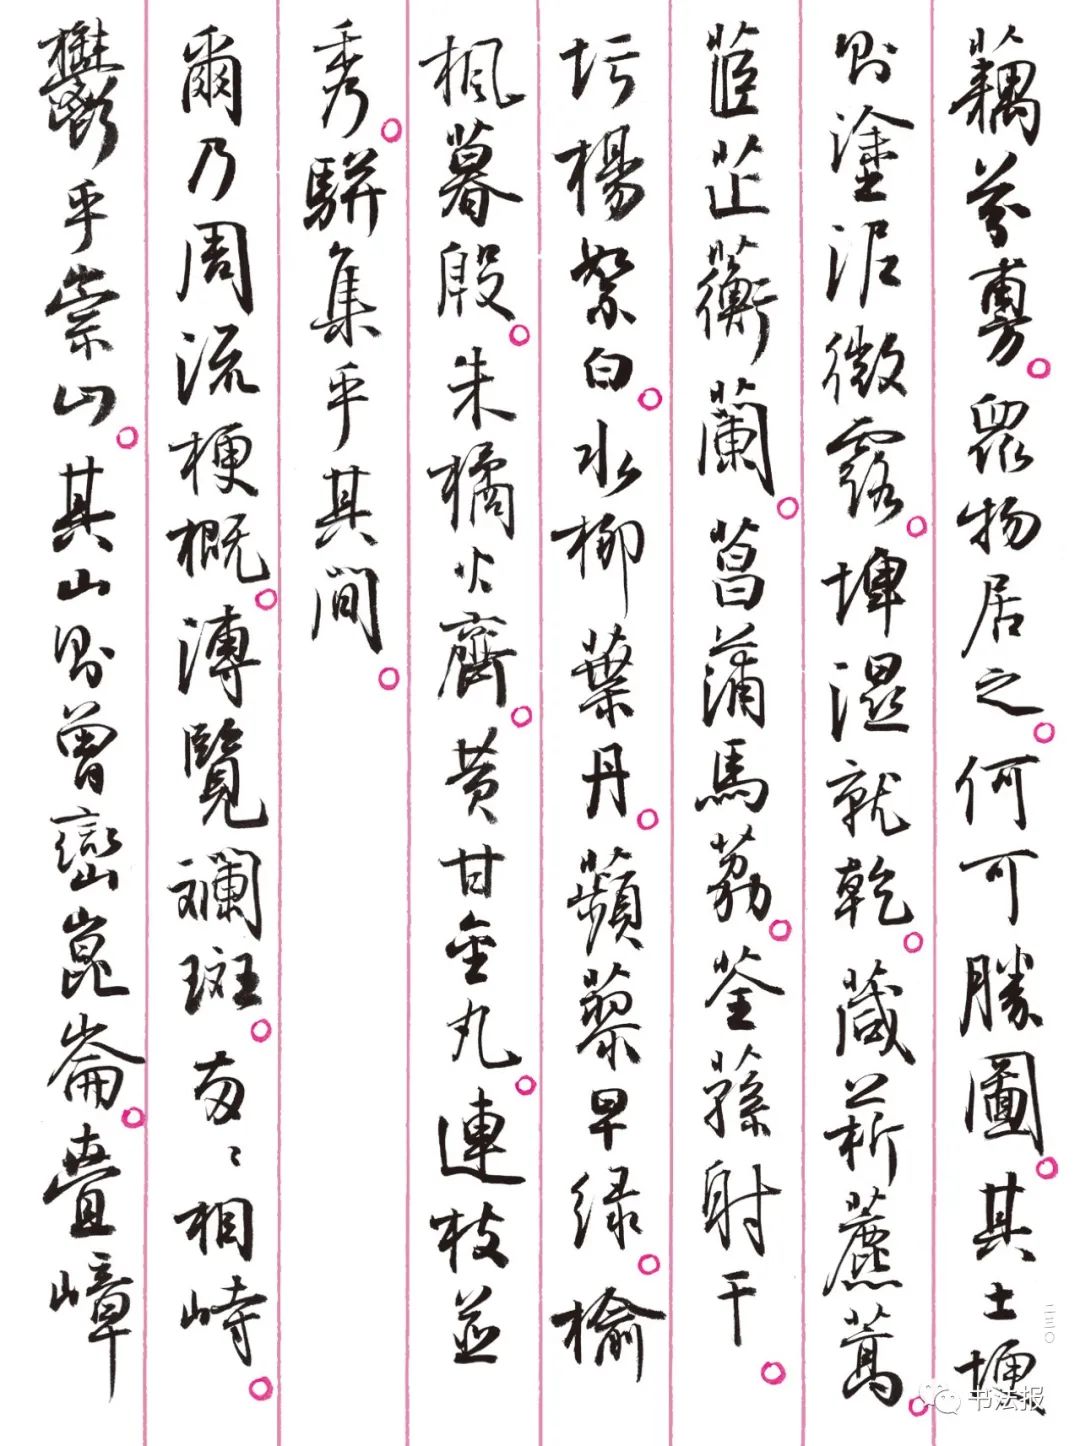 藕芬旉。眾物居之。何可勝圖。其土
則塗泥微露。埤濕就乾。葴菥藨
茝芷蘅蘭。菖蒲馬荔。荃蓀射干。
圬楊絮白。水柳葉丹。蘋蓼早绿。榆
楓暮殷。朱橘火齊。黄甘金丸。連枝並
秀。駢集乎其間。
爾乃周流梗概。溥覽斕斑。两々相峙。
鬱乎崇山。其山則曾巒崑崙。疊嶂
二三〇
书法报